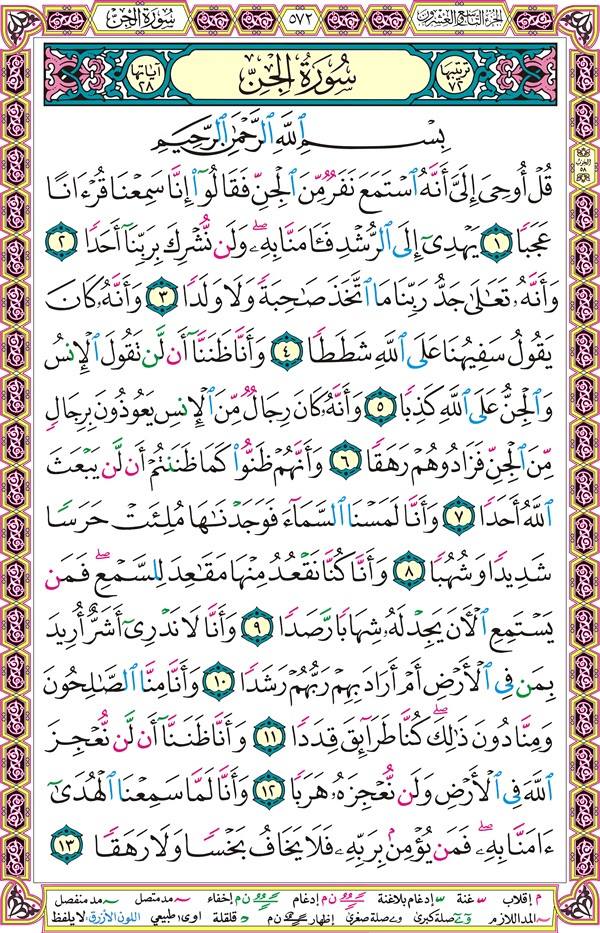 الجزء التاسع والعشرون
٥٧٢
سورة الجن
ترتيبها ٧٢
سُورَةُ الْجِنِّ
آياتها ٢٨
بِسْمِ ٱللَّهِ ٱلرَّحْمَٰنِ ٱلرَّحِيمِ
قُلْ أُوحِىَ إِلَىَّ أَنَّهُ ٱسْتَمَعَ نَفَرٌ مِّنَ ٱلْجِنِّ فَقَالُوٓا۟ إِنَّا سَمِعْنَا قُرْءَانًا
عَجَبًا ١ يَهْدِىٓ إِلَى ٱلرُّشْدِ فَـَٔامَنَّا بِهِۦ ۖ وَلَن نُّشْرِكَ بِرَبِّنَآ أَحَدًا ٢
وَأَنَّهُۥ تَعَٰلَىٰ جَدُّ رَبِّنَا مَا ٱتَّخَذَ صَٰحِبَةً وَلَا وَلَدًا ٣ وَأَنَّهُۥ كَانَ
يَقُولُ سَفِيهُنَا عَلَى ٱللَّهِ شَطَطًا ٤ وَأَنَّا ظَنَنَّآ أَن لَّن تَقُولَ ٱلْإِنسُ
وَٱلْجِنُّ عَلَى ٱللَّهِ كَذِبًا ٥ وَأَنَّهُۥ كَانَ رِجَالٌ مِّنَ ٱلْإِنسِ يَعُوذُونَ بِرِجَالٍ
مِّنَ ٱلْجِنِّ فَزَادُوهُمْ رَهَقًا ٦ وَأَنَّهُمْ ظَنُّوا۟ كَمَا ظَنَنتُمْ أَن لَّن يَبْعَثَ
ٱللَّهُ أَحَدًا ٧ وَأَنَّا لَمَسْنَا ٱلسَّمَآءَ فَوَجَدْنَٰهَا مُلِئَتْ حَرَسًا
شَدِيدًا وَشُهُبًا ٨ وَأَنَّا كُنَّا نَقْعُدُ مِنْهَا مَقَٰعِدَ لِلسَّمْعِ ۖ فَمَن
يَسْتَمِعِ ٱلْـَٔانَ يَجِدْ لَهُۥ شِهَابًا رَّصَدًا ٩ وَأَنَّا لَا نَدْرِىٓ أَشَرٌّ أُرِيدَ
بِمَن فِى ٱلْأَرْضِ أَمْ أَرَادَ بِهِمْ رَبُّهُمْ رَشَدًا ١٠ وَأَنَّا مِنَّا ٱلصَّٰلِحُونَ
وَمِنَّا دُونَ ذَٰلِكَ ۖ كُنَّا طَرَآئِقَ قِدَدًا ١١ وَأَنَّا ظَنَنَّآ أَن لَّن نُّعْجِزَ
ٱللَّهَ فِى ٱلْأَرْضِ وَلَن نُّعْجِزَهُۥ هَرَبًا ١٢ وَأَنَّا لَمَّا سَمِعْنَا ٱلْهُدَىٰٓ
ءَامَنَّا بِهِۦ ۖ فَمَن يُؤْمِنۢ بِرَبِّهِۦ فَلَا يَخَافُ بَخْسًا وَلَا رَهَقًا ١٣
م إقلاب غنة إدغام بلاغنة ن م إدغام ن م إخفاء مد متصل مد منفصل
المد اللازم صلة كبرى صلة صغرى إظهار ن م قلقلة اوى طبيعي اللون الأزرق لا يلفظ